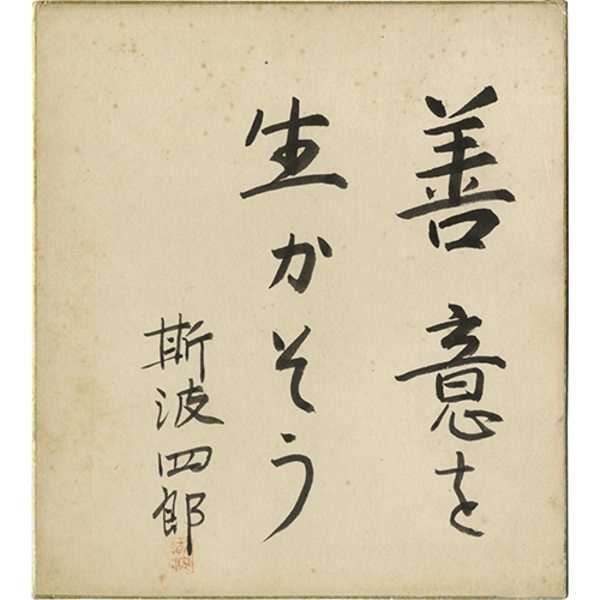 善意を
生かそう
斯波四郎